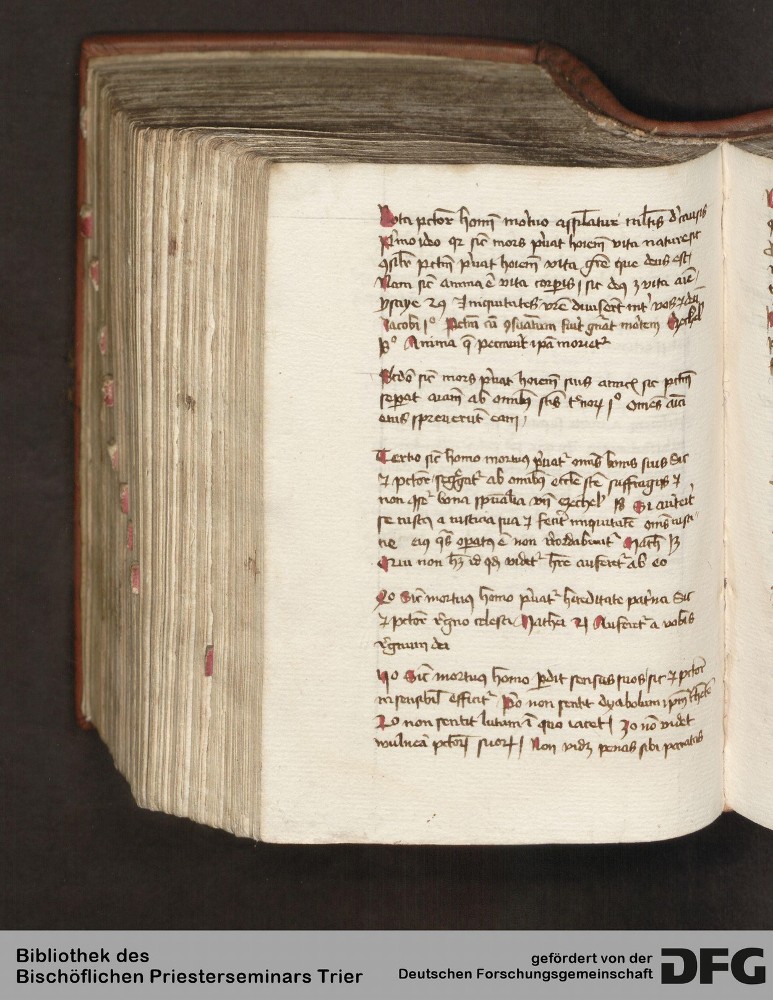 Nota pctor homi mortuo assilatur multis d causis
Primo ideo qr sic mors pruat hoiem vita nature sic
pctm pruat hoiem vita gre que deus est
Nam sic anima e vita corporis sic deus vita aie
ysaye iniquitates vre diviserunt int vos et deum
Jacobi i° Pctm generat mortem Ezechiel
Anima q peccaverit ipa moriet
sic mors pruat hoiem suis amicis sic pctm
seperat aiam ab omnibus stis omes amici
eius spreverut eam
Tertio sic homo mortuus pruatr omibus bonis suis Sic
et pctor segregatr ab omnibus ecclesie ste suffragiis et
non bona spualia vn ezechiel 18 Si averterit
se iustus a iusticia sua et fecerit iniquitate omes iusti
tie eius qas operatus e non recordabuntur Math 13
Qui non hz id qd videtr hre auferetr ab eo
4o Sic mortuus homo pruatr hereditate paterna Sic
et pctor regno celesti Mathei 21 Auferetr a vobis
regnum dei
Sic mortuus homo perdit sensus suos sic et pctor
insensibilis efficitr Po non sentit dyabolum
2o non sentit lutum in quo iacet 3o no videt
wulnera pctorum suorum Non videt penas sibi paratas
Bibliothek des
Bischöflichen Priesterseminars Trier
gefördert von der
Deutschen Forschungsgemeinschaft
DFG